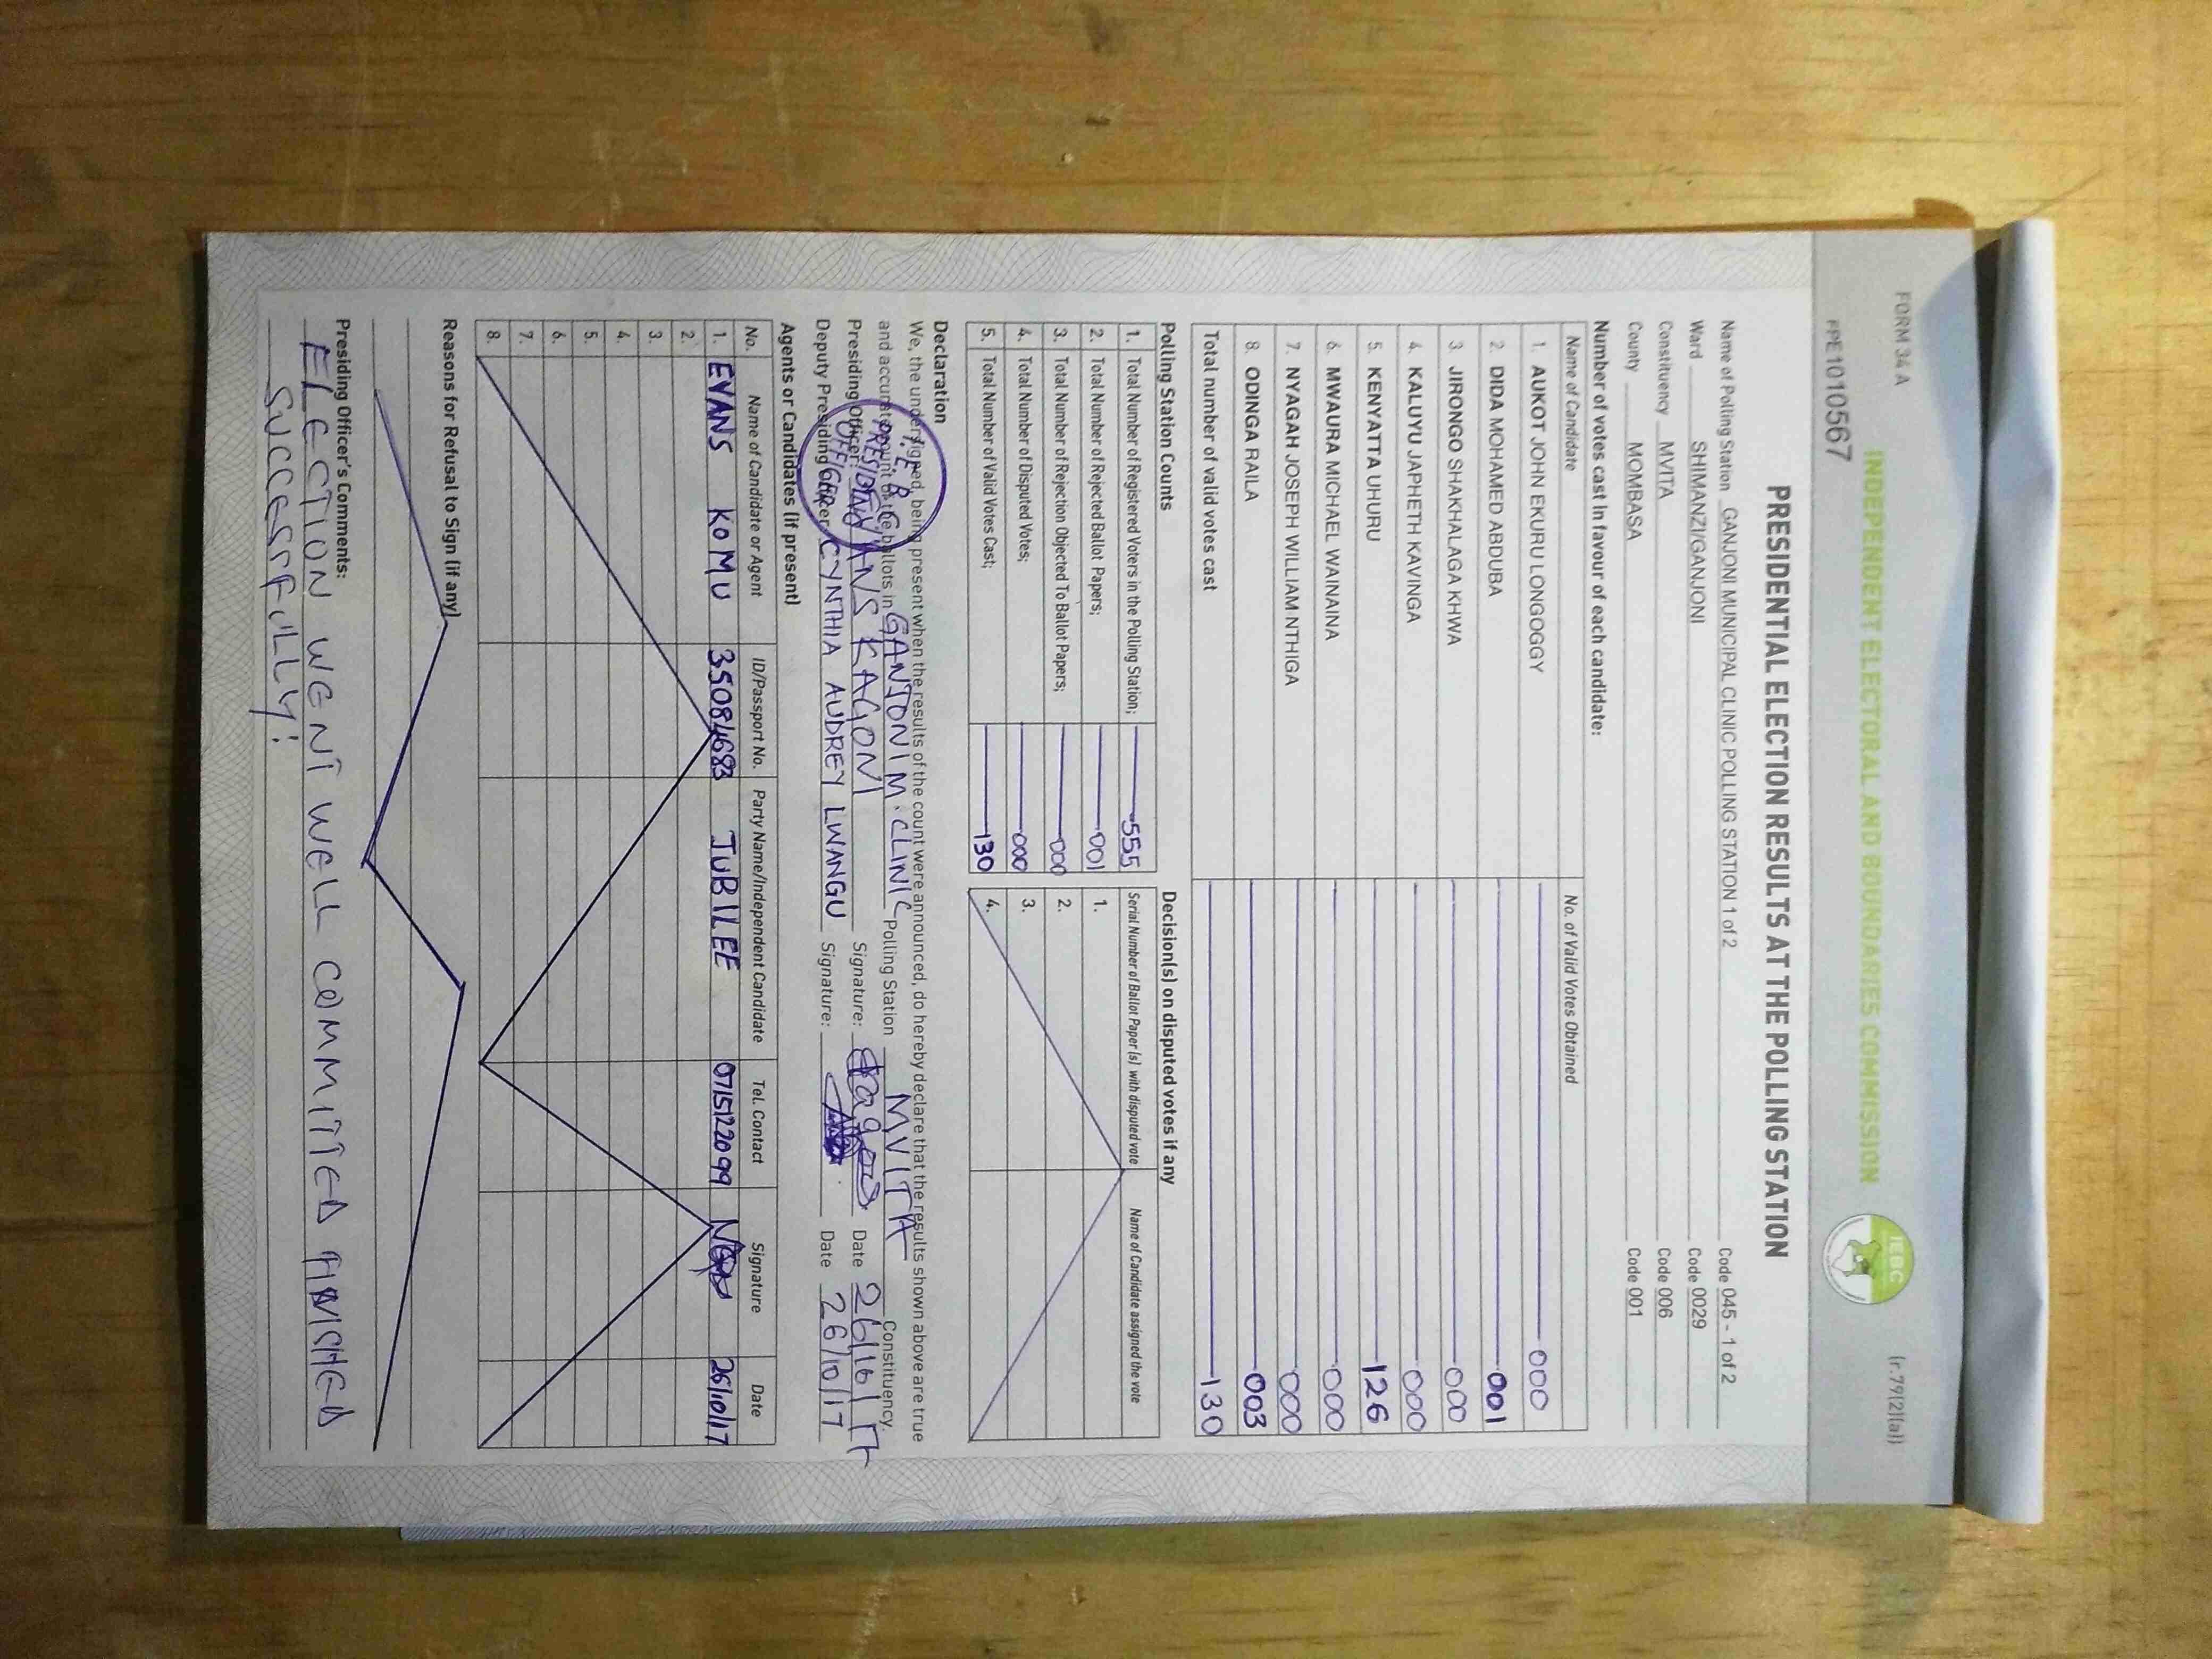 FORM 34 A
(r.79(2)(a))
INDEPENDENT ELECTORAL AND BOUNDARIES COMMISSION
IEBC
PPE1010567
PRESIDENTIAL ELECTION RESULTS AT THE POLLING STATION
Name of Polling Station GANJONI MUNICIPAL CLINIC POLLING STATION 1 of 2 Code 045 - 1 of 2
Ward SHIMANZI/GANJONI Code 0029
Constituency MVITA Code 006
County MOMBASA Code 001
Number of votes cast in favour of each candidate:
Name of Candidate No. of Valid Votes Obtained
1. AUKOT JOHN EKURU LONGOGGY 000
2. DIDA MOHAMED ABDUBA 001
3. JIRONGO SHAKHALAGA KHWA 000
4. KALUYU JAPHETH KAVINGA 000
5. KENYATTA UHURU 126
6. MWAURA MICHAEL WAINAINA 000
7. NYAGAH JOSEPH WILLIAM NTHIGA 000
8. ODINGA RAILA 003
Total number of valid votes cast 130
Polling Station Counts
1. Total Number of Registered Voters in the Polling Station; 555
2. Total Number of Rejected Ballot Papers; 001
3. Total Number of Rejection Objected To Ballot Papers; 000
4. Total Number of Disputed Votes; 000
5. Total Number of Valid Votes Cast; 130
Decision(s) on disputed votes if any
Serial Number of Ballot Paper (s) with disputed vote Name of Candidate assigned the vote
1.
2.
3.
4.
Declaration
We, the undersigned, being present when the results of the count were announced, do hereby declare that the results shown above are true
and accurate count of the ballots in GANJONI M. CLINIC Polling Station MVITA Constituency.
Presiding Officer: KAGONI Signature: Date 26/10/17
Deputy Presiding Officer: CYNTHIA AUDREY LWANGU Signature: Date 26/10/17
I.E.B.C
PRESIDING
OFFICER
Agents or Candidates (if present)
No. Name of Candidate or Agent ID/Passport No. Party Name/Independent Candidate Tel. Contact Signature Date
1. EVANS KOMU 35084683 JUBILEE 0715122099 26/10/17
2.
3.
4.
5.
6.
7.
8.
Reasons for Refusal to Sign (if any)
Presiding Officer's Comments:
ELECTION WENT WELL COMMITTED FINISHED
SUCCESSFULLY!